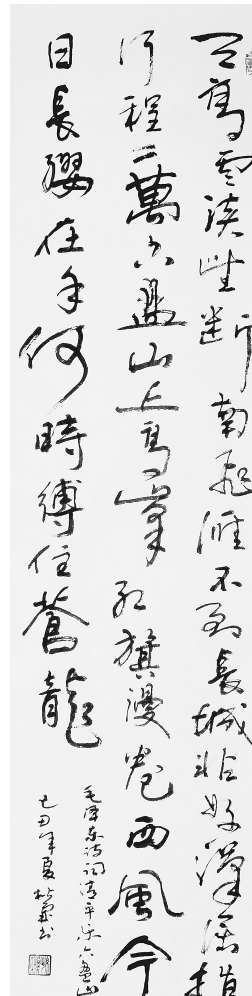 天高雲淡望斷南飛雁不到長城非好漢屈指
行程二萬六盤山上高峰紅旗漫卷西風今
日長纓在手何時縛住蒼龍
毛澤東詩詞清平樂六盤山
己丑年夏